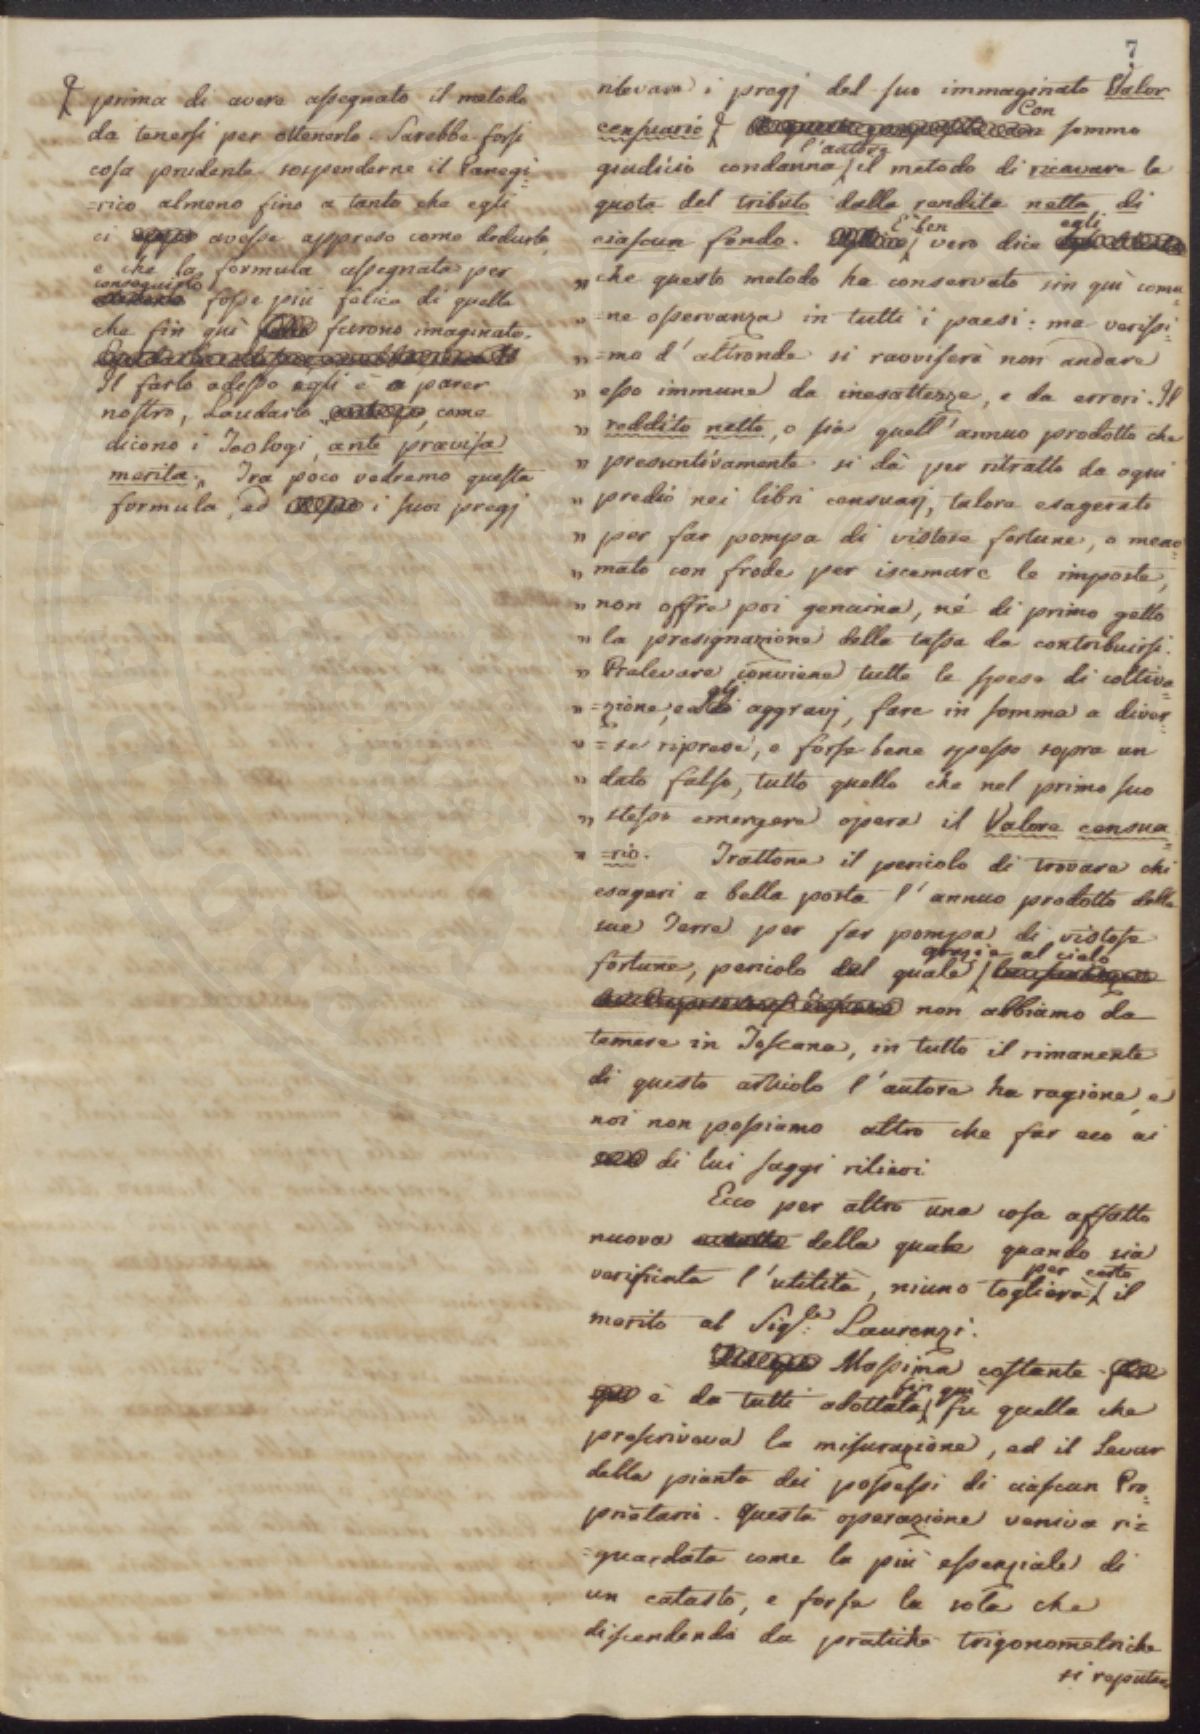 7
prima di avere assegnato il metodo
da tenersi per ottenerlo. Sarebbe forsi
cosa prudente sospenderne il Panegi
=rico almeno fino a tanto che egli
ci avesse appreso come dedurlo,
e che la formula assegnata per
conseguirlo
fosse più felice di quelle
che fin quì furono imaginate.
Il farlo adesso egli è a parer
nostro, Laudarlo, come
dicono i Teologi, ante prævisa
merita. Tra poco vedremo questa
formula, ed i suoi pregj
rilevare i pregj del suo immaginato Valor
Con
censuario sommo
l'autore
giudizio condanna il metodo di ricavare la
quota del tributo dalla rendita netta di
È ben egli
ciascun fondo. vero dice
„ che questo metodo ha conservato sin quì comu
„ =ne osservanza in tutti i paesi: ma verissi
„ =mo d'altronde si ravviserà non andare
„ esso immune da inesattezze, e da errori. Il
„ reddito netto, o sia quell'annuo prodotto che
„ presuntivamente si dà per ritratto da ogni
„ predio nei libri censuarj, talora esagerato
„ per far pompa di vistose fortune, o meno
„ mato con frode per iscemare le imposte,
„ non offre poi genuina, né di primo getto
„ la presignazione della tassa da contribuirsi.
„ Prelevare conviene tutte le spese di coltiva
gli
„ =zione, e aggravj, fare in somma a diver
„ =se riprese, e forse bene spesso sopra un
„ dato falso, tutto quello che nel primo suo
„ stesso emergere opera il Valore censua
„ =rio. Trattone il pericolo di trovare chi
esageri a bella posta l'annuo prodotto delle
sue Terre per far pompa di vistose
grazie al cielo
fortune, pericolo del quale
non abbiamo da
temere in Toscana, in tutto il rimanente
di questo articolo l'autore ha ragione, e
noi non possiamo altro che far eco ai
di lui saggi rilievi.
Ecco per altro una cosa affatto
nuova della quale quando sia
per certo
verificata l'utilità, niuno toglierà il
merito al Sig.re Laurenzi.
Massima costante
fin quì
è da tutti adottata fu quella che
prescriveva la misurazione, ed il Levar
della pianta dei possessi di ciascun Pro
prietario. Questa operazione veniva ri=
=guardata come la più essenziale di
un catasto, e forse la sola che
discendendo da pratiche trigonometriche
si reputas